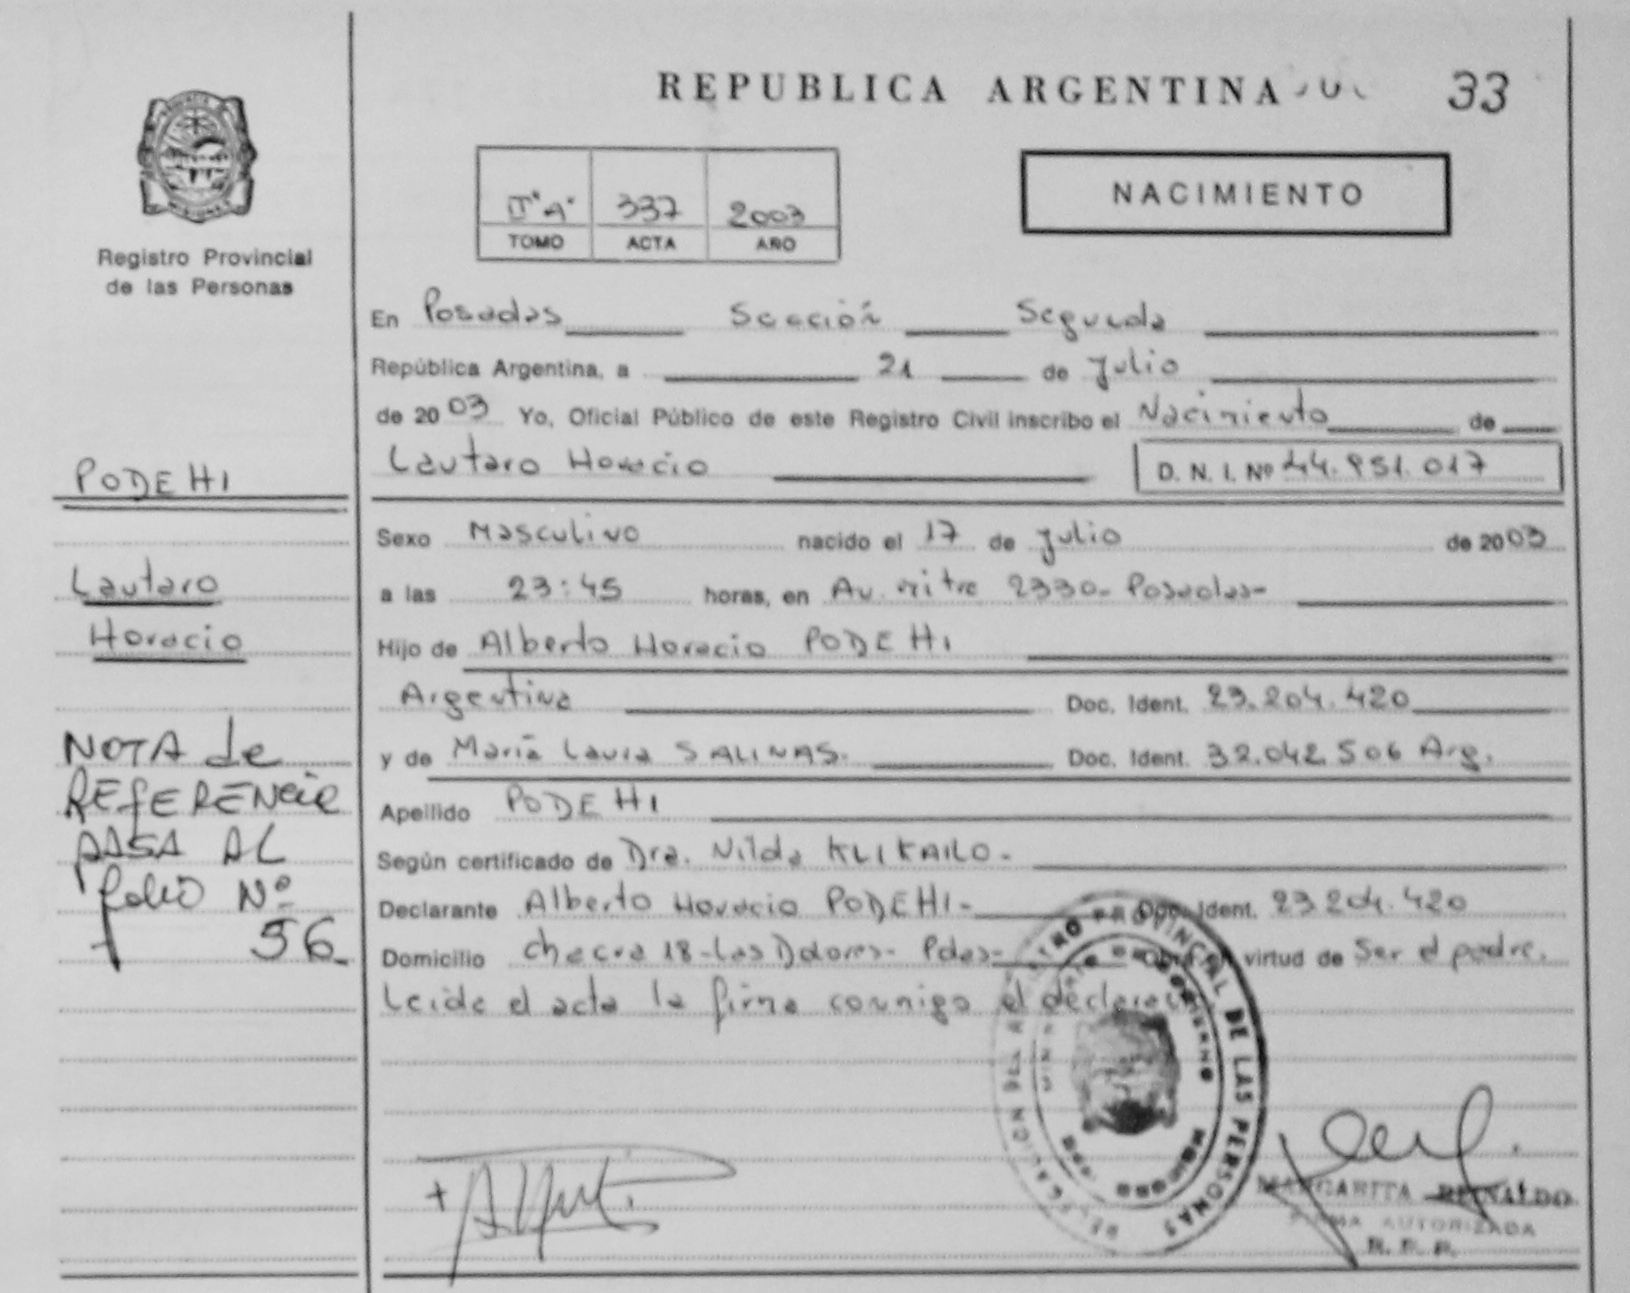 REPUBLICA ARGENTINA 33
IIº "A" 337 2003
TOMO ACTA AÑO
NACIMIENTO
Registro Provincial
de las Personas
En Posadas Sección Segunda
República Argentina, a 21 de Julio
de 2003 Yo, Oficial Público de este Registro Civil inscribo el Nacimiento de
Lautaro Horacio D. N. I. Nº 44.951.017
Sexo Masculino nacido el 17 de Julio de 2003
a las 23:45 horas, en Av. mitre 2330- Posadas-
Hijo de Alberto Horacio PODEHI
Argentina Doc. Ident. 23.204.420
y de María Laura SALINAS. Doc. Ident. 32.042.506 Arg.
Apellido PODEHI
Según certificado de Dra. Nilda KLIKAILO.
Declarante Alberto Horacio PODEHI- Doc. Ident. 23.204.420
Domicilio Chacra 18-Las Dolores- Pdas- Obra en virtud de Ser el padre.
Leida el acta la firma conmigo el declarante
PODEHI
Lautaro
Horacio
NOTA de
REFERENCIA
PASA AL
folio Nº
56
PROVINCIAL DE LAS PERSONAS
MARGARITA REINALDO
FIRMA AUTORIZADA
R. P. P.